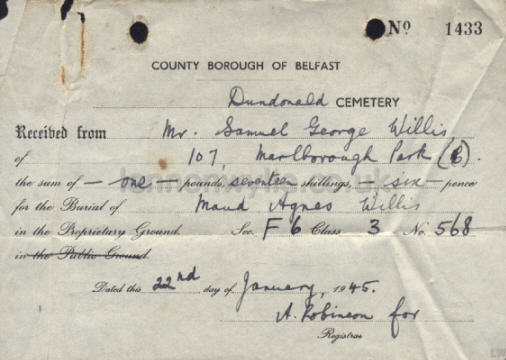 Nº 1433
COUNTY BOROUGH OF BELFAST
Dundonald CEMETERY
Received from Mr. Samuel George Willis
of 107, Marlborough Park (C).
the sum of — one — pounds, seventeen shillings, — six — pence
for the Burial of Maud Agnes Willis
in the Proprietary Ground. Sec. F6 Class 3 No. 568
in the Public Ground.
Dated this 22nd day of January, 1945.
A. Robinson for
Registrar